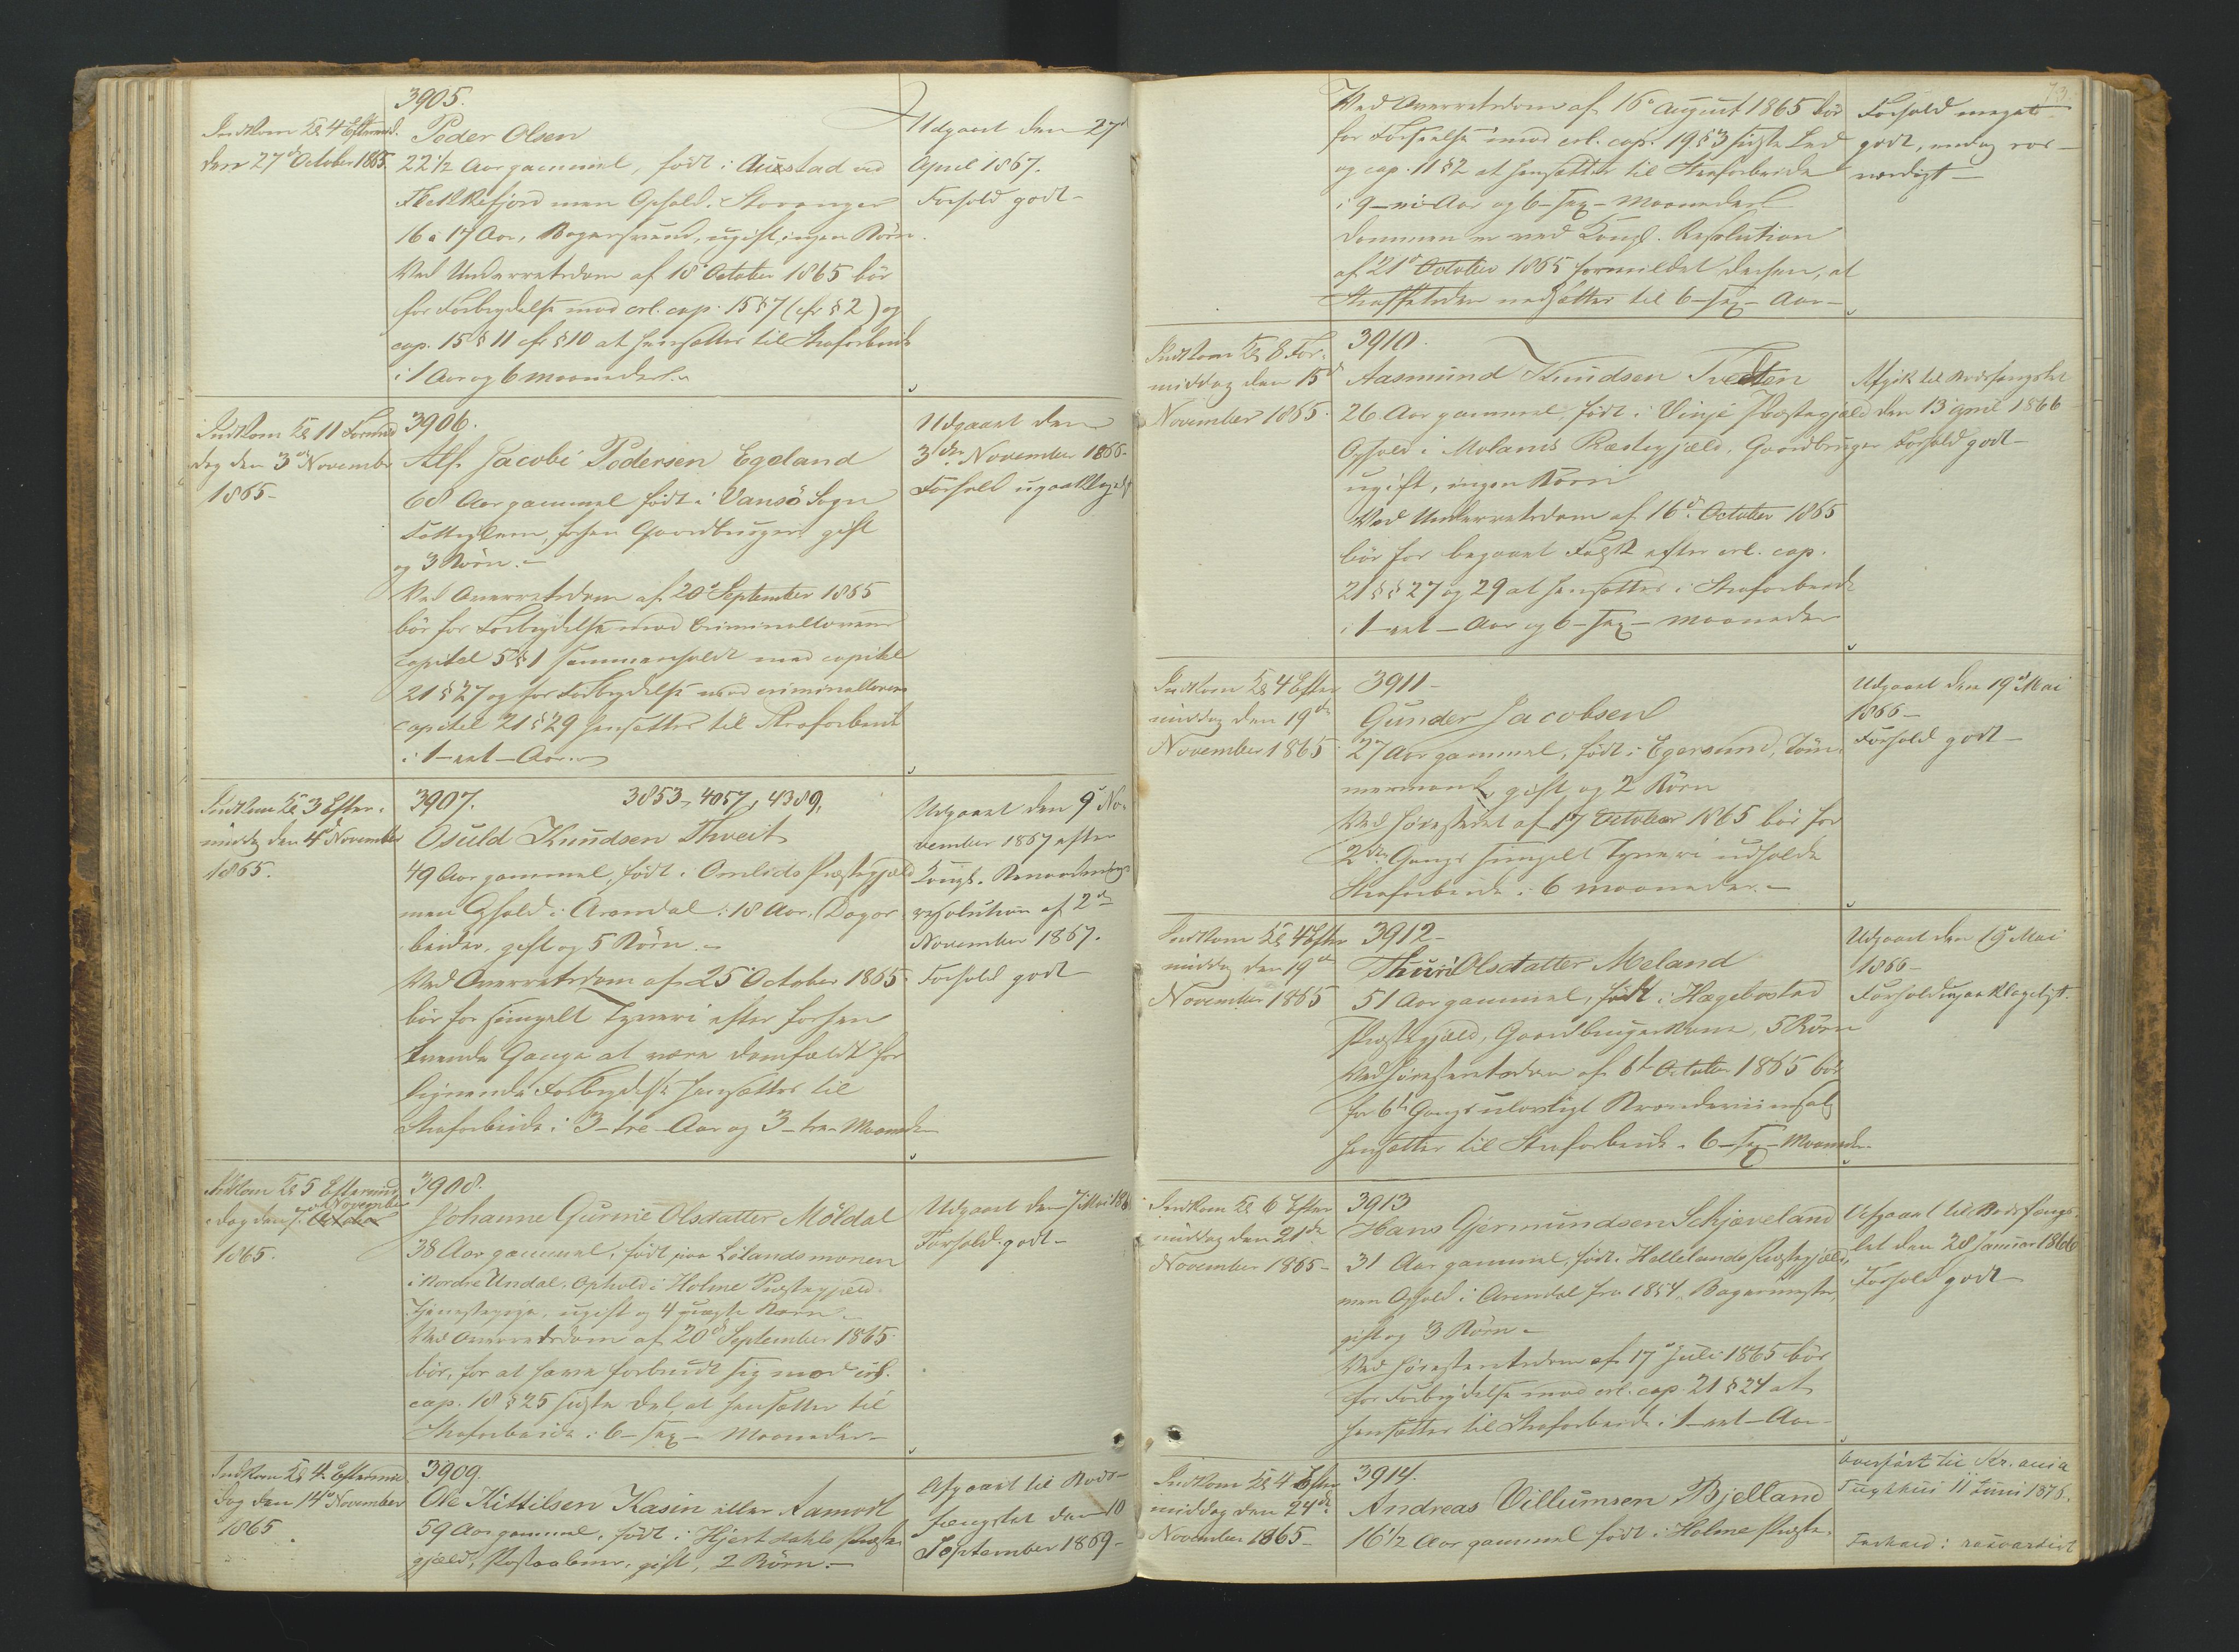 3905.
Indkom Kl 4 Eftermd.
den 27de October 1865.
Peder Olsen
22 1/2 Aar gammel, født i Austad ved
Flekkefjord men Ophold i Stavanger
16 à 17 Aar, Bagersvend, ugift, ingen Børn.
Ved Underretsdom af 18de October 1865 bør
for Forbrydelse mod crl. cap. 15 § 7 (cfr § 2) og
cap. 15 § 11 cfr § 10 at hensættes til Strafarbeide
i 1 Aar og 6 Maaneder.
Udgaaet den 27de
April 1867.
Forhold godt-
Indkom Kl 11 Formid
dag den 3de November
1865-
3906.
Alf Jacobi Pedersen Egeland
68 Aar gammel født i Vansø Sogn
Fattiglem, forhen Gaardbruger, gift
og 3 Børn.-
Ved Overretsdom af 20de September 1865
bør for Forbrydelse mod Criminallovens
Capitel 5 § 1 sammenholdt med capitel
21 § 27 og for Forbrydelse mod criminallovens
capitel 21 § 29 hensættes til Strafarbeide
i 1-eet-Aar.
Udgaaet den
3die November 1866-
Forhold upaaklageligt
Indkom Kl 3 Efter-
middag den 4de November
1865.
3907. 3853, 4057, 4389.
Osuld Knudsen Thveit
49 Aar gammel, født i Omlids Præstegjæld
men Ophold i Arendal i 18 Aar. Dagar
beider, gift og 5 Børn.-
Ved Overretsdom af 25de October 1865
bør for simpelt Tyveri efter forhen
trende Gange at være domfældt for
lignende Forbrydelse hensættes til
Strafarbeide i 3-tre-Aar og 3-tre-Maaneder
Udgaaet den 9de No-
vember 1867 efter
Kongl. Benaadnings
resolution af 2den
November 1867.
Forhold godt
Indkom Kl 5 Eftermid
dag den 7de November
1865.
3908.
Johanne Gurine Olsdatter Møldal
38 Aar gammel, født paa Lølandsmonen
i Nordre Undal. Ophold i Holme Præstegjeld.
Tjenestepige, ugift og 4 uægte Børn-
Ved Overretsdom af 20de September 1865
bør, for at have forbrudt sig mod crl.
cap. 18 § 25 sidste Del, at hensættes til
Strafarbeide i 6-sex-Maaneder-
Udgaaet den 7 Mai 186
Forhold godt-
Indkom Kl 4 Eftermid
dag den 14de November
1865
3909.
Ole Kittilsen Kasin eller Aamodt
59 Aar gammel, født i Hjertdahls Præste
gjæld, Postaabner, gift, 2 Børn.-
Afgaaet til Bods-
fængslet den 10
September 1869-
73.
Ved Overretsdom af 16de August 1865 bør
for Forseelse mod crl. cap. 19 § 3 sidste Led
og cap. 11 § 2 at hensættes til Strafarbeide
i 9-ni-Aar og 6-sex-Maaneder
Dommen er ved Kongl. Resolution
af 21de October 1865 formildet derhen, at
Straffetiden nedsættes til 6-sex-Aar-
Forhold meget
godt, endog ros-
værdigt-
Indkom Kl 8 For-
middag den 15de
November 1865.
3910.
Aasmund Knudsen Tvedten
26 Aar gammel, født i Vinje Præstegjæld
Ophold i Molands Præstegjæld, Gaardbruger
ugift, ingen Børn
Ved Underretsdom af 16de October 1865
bør for begaaet Falsk efter crl. cap.
21 §§ 27 og 29 at hensættes i Strafarbeide
i 1-eet-Aar og 6-sex-Maaneder
Afgik til Bodsfængslet
den 13 April 1866
Forhold godt-
Indkom Kl 4 Efter
middag den 19de
November 1865
3911-
Gunder Jacobsen
27 Aar gammel, født i Egersund, Tøm-
mermand, gift og 2 Børn
Ved Høiesteret af 17 October 1865 bør for
2den Gangs simpelt Tyveri udholde
Strafarbeide i 6 Maaneder.-
Udgaaet den 19de Mai
1866-
Forhold godt-
Indkom Kl 4 Efter
middag den 19de
November 1865
3912-
Thuri Olsdatter Meland
51 Aar gammel, født i Hægebostad
Præstegjæld, Gaardbrugerkone, 5 Børn
Ved Høiesteretsdom af 6te October 1865 bør
for 6te Gangs ulovligt Brændeviinssalg
hensættes til Strafarbeide i 6-sex-Maaneder
Udgaaet den 19de Mai
1866-
Forhold upaaklageligt.
Indkom Kl 6 Efter
middag den 21de
November 1865-
3913
Hans Gjermundsen Schjæveland
31 Aar gammel, født i Hellelands Præstegjæld,
men Ophold i Arendal fra 1854. Bagermester,
gift og 3 Børn-
Ved Høiesteretsdom af 17de Juli 1865 bør
for Forbrydelse mod crl. cap. 21 § 24 at
hensættes til Strafarbeide i 1-eet-Aar-
Afgaaet til Bodsfængs-
let den 28 Januar 1866
Forhold godt-
Indkom Kl 4 Efter
middag den 24de
November 1865-
3914.
Andreas Villumsen Bjelland
16 1/2 Aar gammel født i Holme Præste-
Overført til Kr.ania
Tugthus 11 Juni 1875.
Forhold: rosværdigt